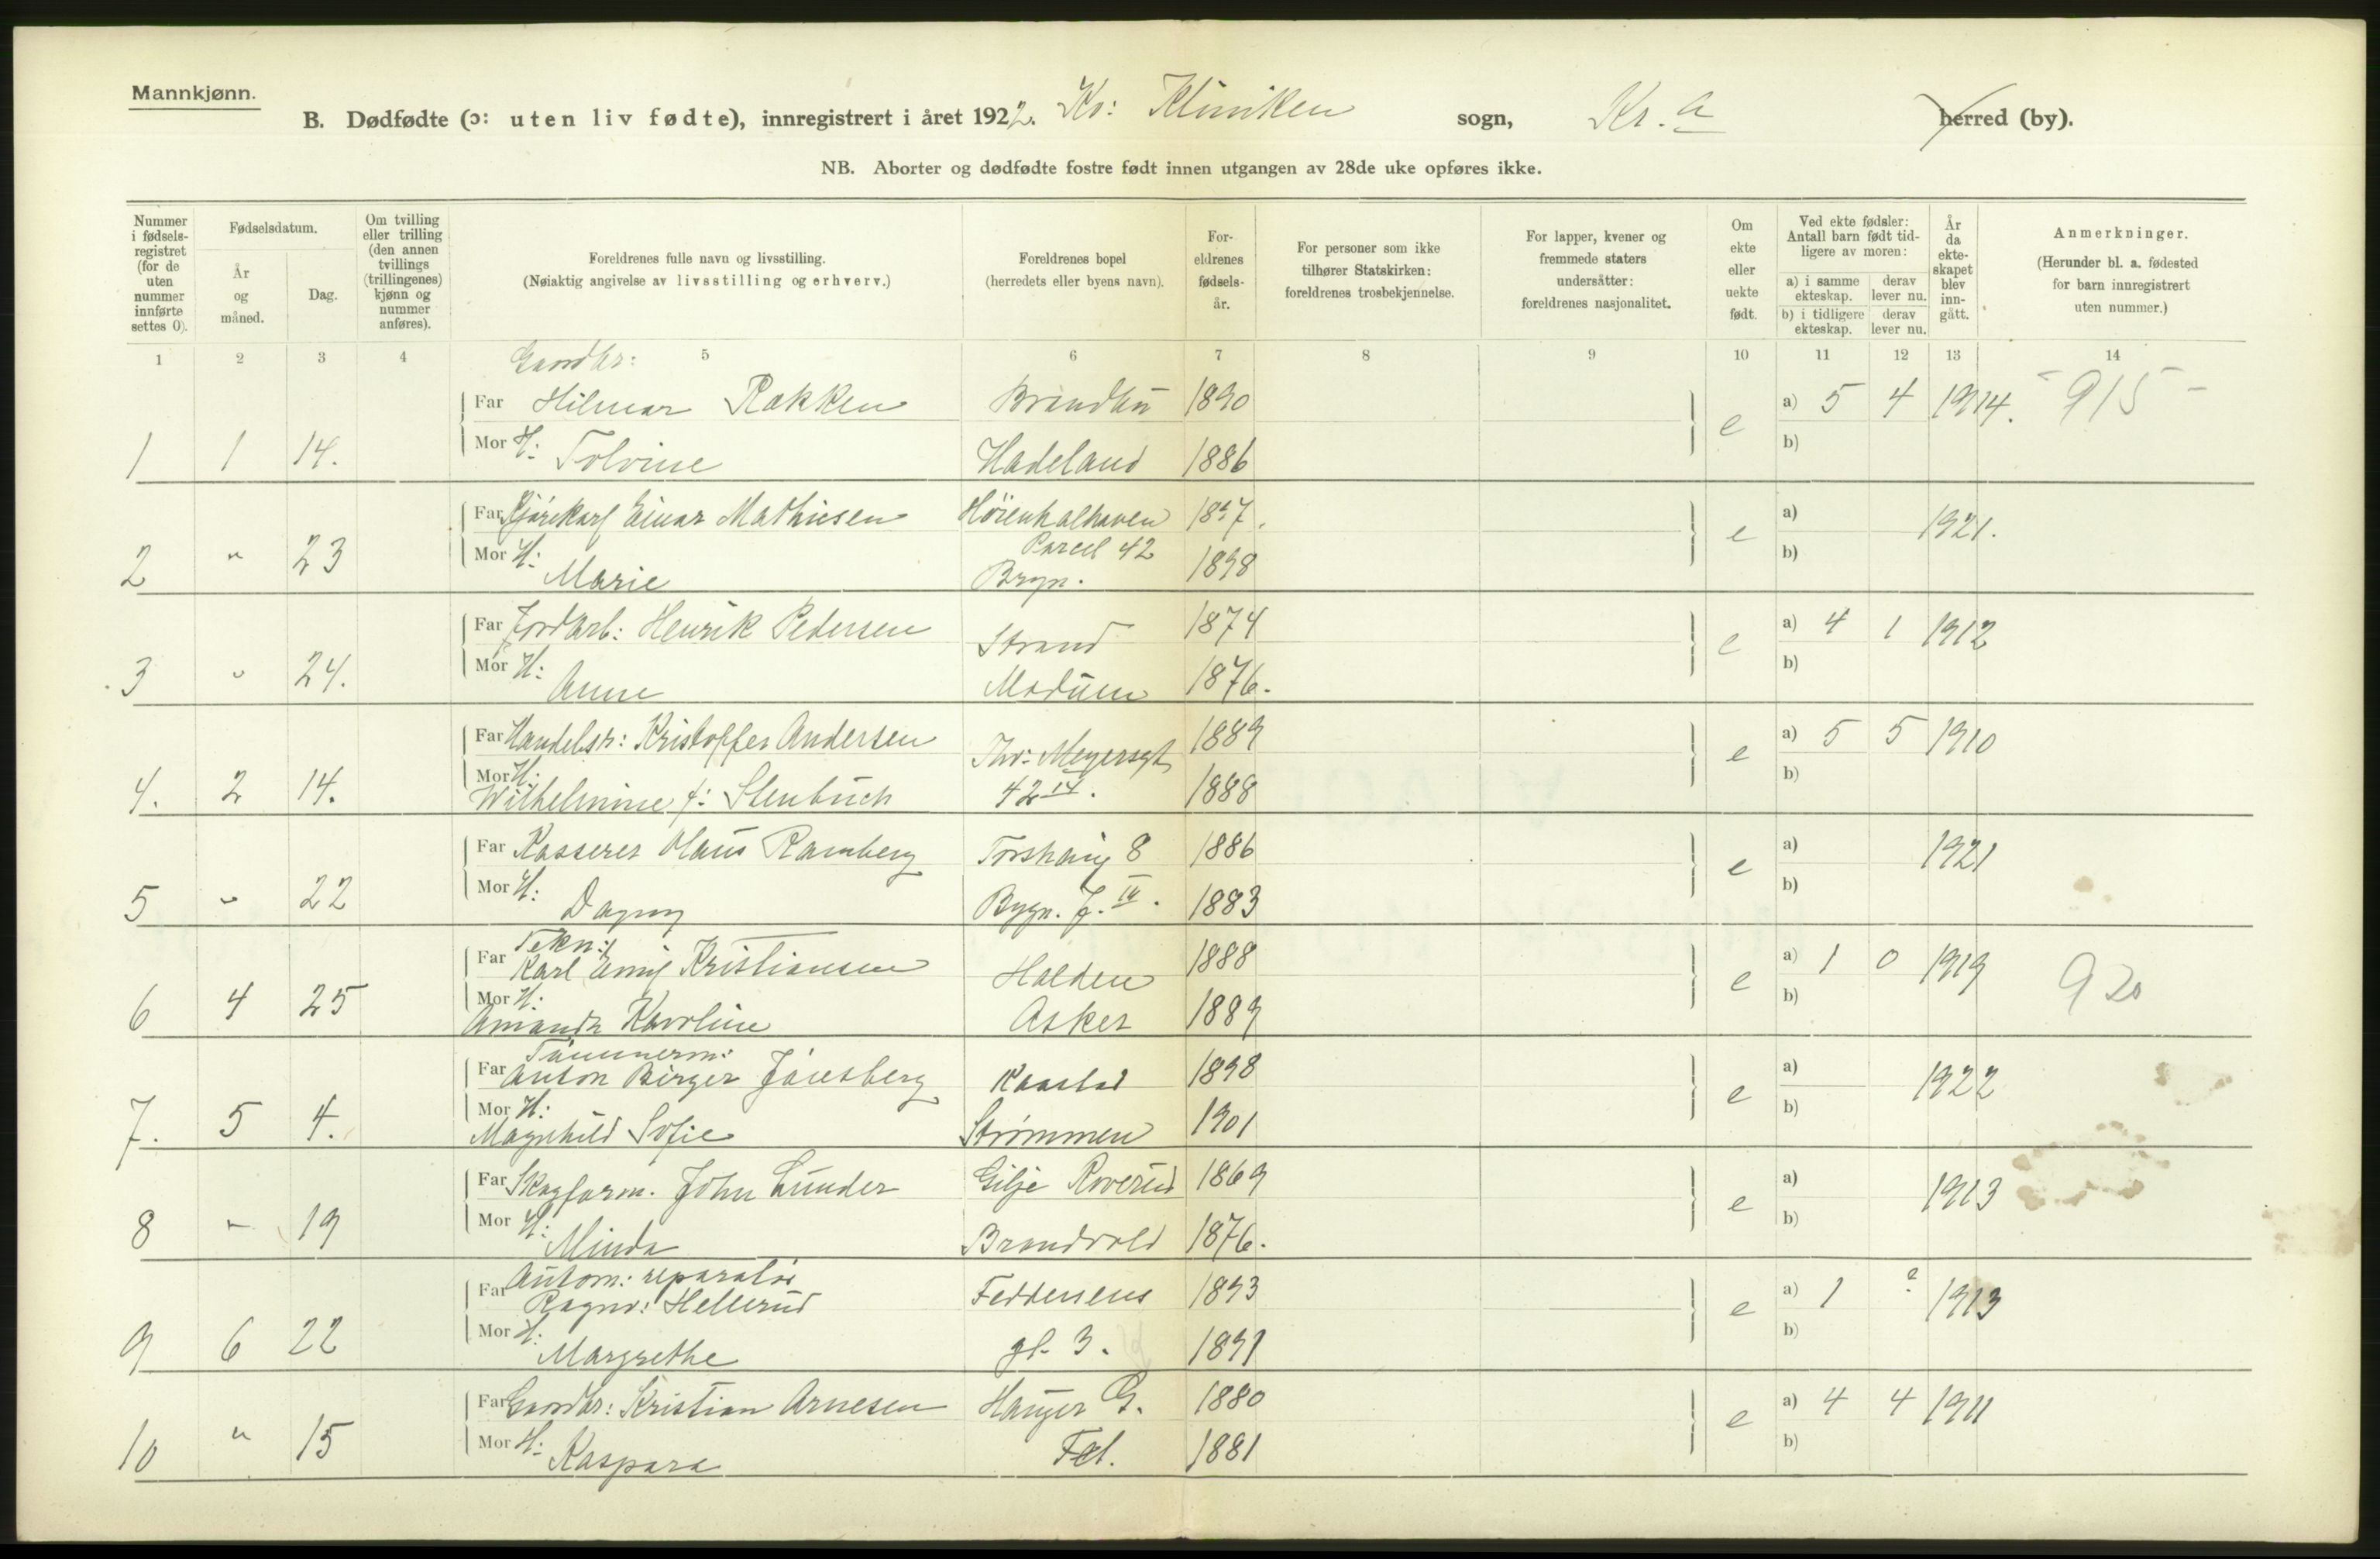 Mannkjønn.
B. Dødfødte (ɔ: uten liv fødte), innregistrert i året 1922. Kv: Kliniken sogn, Kr.a herred (by).
NB. Aborter og dødfødte fostre født innen utgangen av 28de uke opføres ikke.
Nummer i fødselsregistret (for de uten nummer innførte settes 0).
Fødselsdatum.
År og måned.
Dag.
Om tvilling eller trilling (den annen tvillings (trillingenes) kjønn og nummer anføres).
Foreldrenes fulle navn og livsstilling.
(Nøiaktig angivelse av livsstilling og erhverv.)
Foreldrenes bopel
(herredets eller byens navn).
Foreldrenes fødselsår.
For personer som ikke tilhører Statskirken: foreldrenes trosbekjennelse.
For lapper, kvener og fremmede staters undersåtter: foreldrenes nasjonalitet.
Om ekte eller uekte født.
Ved ekte fødsler: Antall barn født tidligere av moren:
a) i samme ekteskap. derav lever nu.
b) i tidligere ekteskap. derav lever nu.
År da ekteskapet blev inngått.
Anmerkninger.
(Herunder bl. a. fødested for barn innregistrert uten nummer.)
1 2 3 4 5 6 7 8 9 10 11 12 13 14
Gaardbr:
Far Hilmar Rakken Brandbu 1890 e a) 5 4 1914. - 915 -
1 1 14. Mor H: Tolvine Hadeland 1886 b)
Far Einar Mathiesen Høienhalhaven 1897. e a) 1921.
Parcel 42
2 " 23 Mor H: Marie Bryn. 1898 b)
Far Jordarb: Henrik Pedersen Strand 1874 e a) 4 1 1912
3 " 24. Mor H: Anne Modum 1876. b)
Far Handelsr: Kristoffer Andersen Thv: Meyersgt 1889 e a) 5 5 1910
4. 2 14. Mor H: Wilhelmine f: Stenbuch 42 IV. 1888 b)
Far Kasserer Olaus Ramberg Torshaug 8 1886 e a) 1921
5 " 22 Mor H: Dagny Bygn. J. IV. 1883 b)
Tekn:
Far Karl Emil Kristiansen Halden 1888 e a) 1 0 1919 920
6 4 25 Mor H: Amanda Karoline Asker 1889 b)
Tømmerm:
Far Anton Birger 1898 e a) 1922
7. 5 4. Mor H: Magnhild Sofie Strømmen 1901 b)
Far Skogform. John Lunder Gilje Roverud 1869 e a) 1913
8 " 19 Mor H: Minda Brandvold 1876. b)
Autom: reparatør
Far Ragnv: Hellerud Feddersens 1893 e a) 1 ? 1913
9 6 22 Mor H: Margrethe gt. 3. 1891 b)
Far Gaardbr: Kristian Arnesen Hauger G. 1880 e a) 4 4 1911
10 " 15 Mor H: Kaspara Fet. 1881 b)